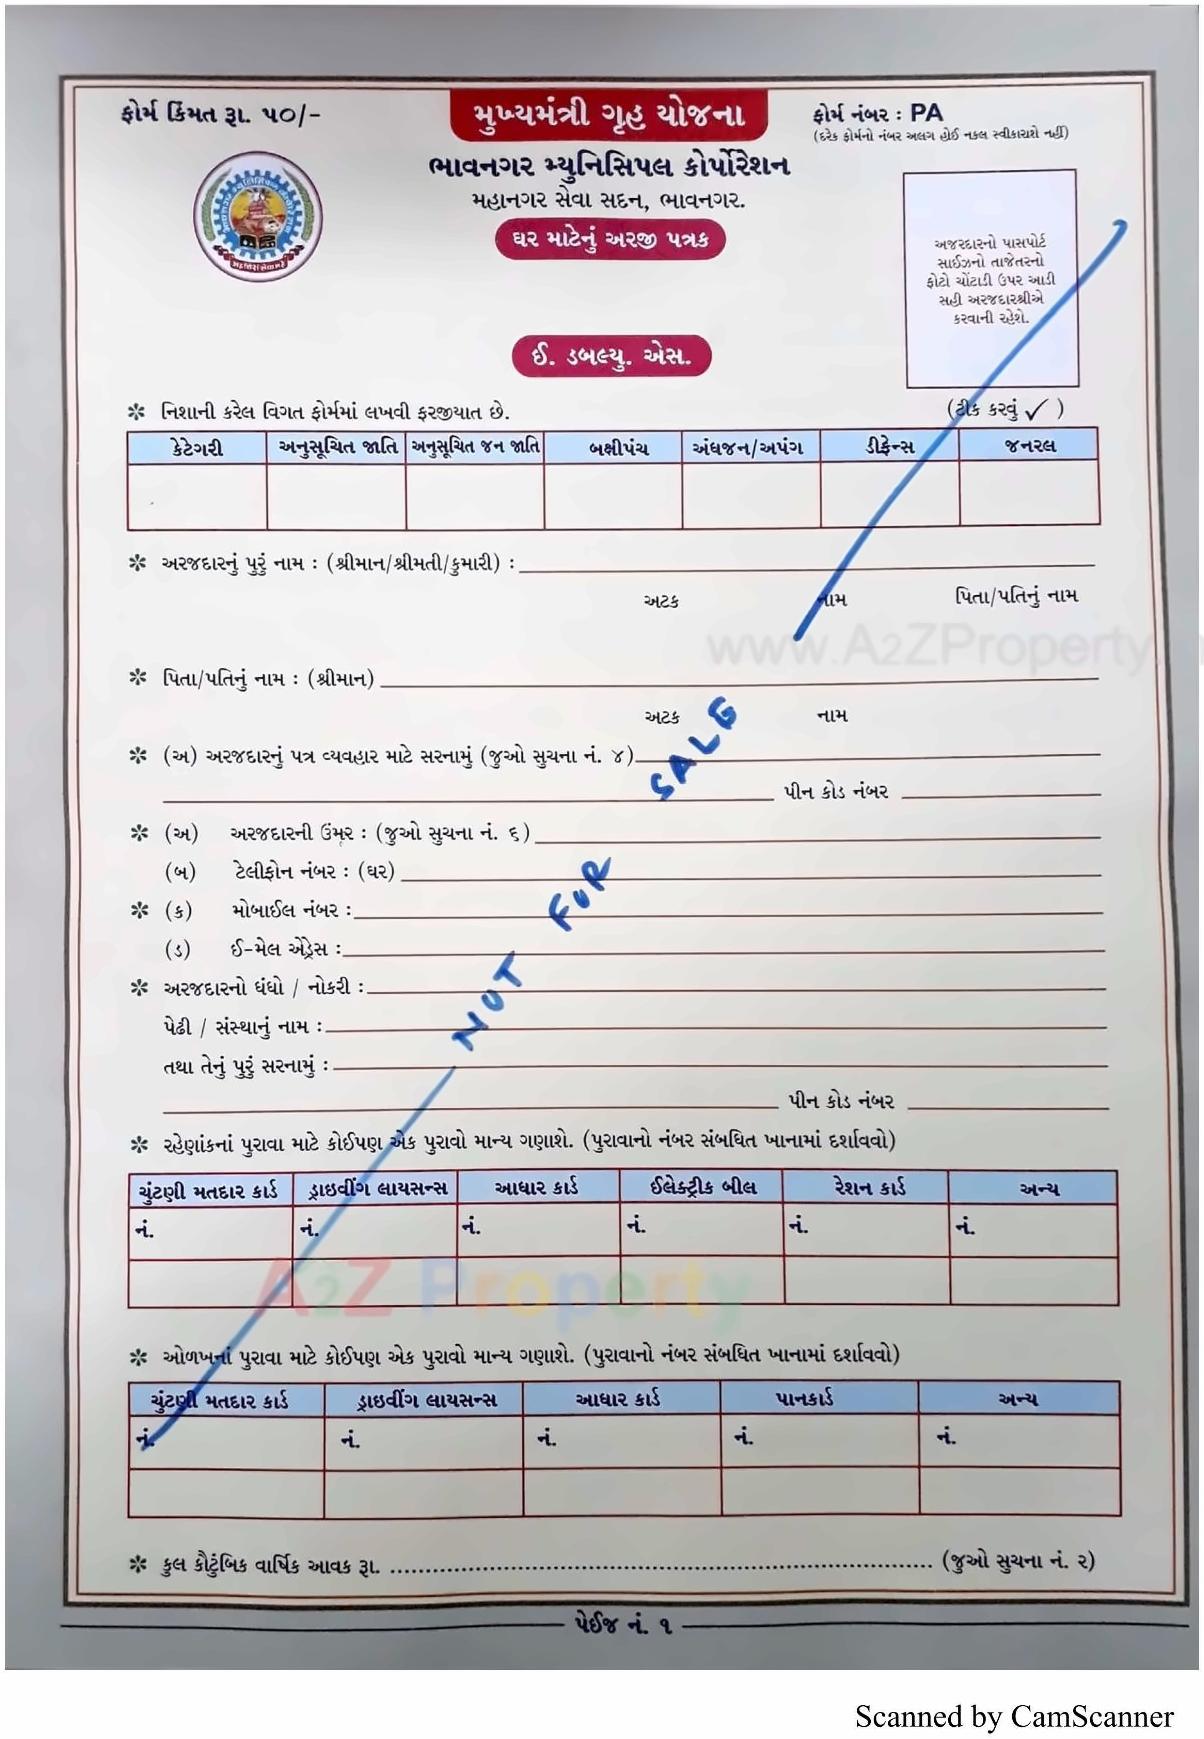 ફોર્મ કિંમત રૂા. ૫૦/-
મુખ્યમંત્રી ગૃહ યોજના
ફોર્મ નંબર : PA
(દરેક ફોર્મનો નંબર અલગ હોઈ નકલ સ્વીકારાશે નહીં)
ભાવનગર મ્યુનિસિપલ કોર્પોરેશન
મહાનગર સેવા સદન, ભાવનગર.
ઘર માટેનું અરજી પત્રક
અજરદારનો પાસપોર્ટ
સાઈઝનો તાજેતરનો
ફોટો ચોંટાડી ઉપર આડી
સહી અરજદારશ્રીએ
કરવાની રહેશે.
ઈ. ડબલ્યુ. એસ.
✻ નિશાની કરેલ વિગત ફોર્મમાં લખવી ફરજીયાત છે.
(ટીક કરવું ✓ )
કેટેગરી અનુસૂચિત જાતિ અનુસૂચિત જન જાતિ બક્ષીપંચ અંધજન/અપંગ ડીફેન્સ જનરલ
✻ અરજદારનું પુરું નામ : (શ્રીમાન/શ્રીમતી/કુમારી) :
અટક નામ પિતા/પતિનું નામ
www.A2ZProperty.
✻ પિતા/પતિનું નામ : (શ્રીમાન)
અટક નામ
✻ (અ) અરજદારનું પત્ર વ્યવહાર માટે સરનામું (જુઓ સુચના નં. ૪)
પીન કોડ નંબર
✻ (અ) અરજદારની ઉંમર : (જુઓ સુચના નં. ૬)
(બ) ટેલીફોન નંબર : (ઘર)
✻ (ક) મોબાઈલ નંબર :
(ડ) ઈ-મેલ એડ્રેસ :
NOT FOR SALE
✻ અરજદારનો ધંધો / નોકરી :
પેઢી / સંસ્થાનું નામ :
તથા તેનું પુરું સરનામું :
પીન કોડ નંબર
✻ રહેણાંકનાં પુરાવા માટે કોઈપણ એક પુરાવો માન્ય ગણાશે. (પુરાવાનો નંબર સંબધિત ખાનામાં દર્શાવવો)
ચુંટણી મતદાર કાર્ડ ડ્રાઇવીંગ લાયસન્સ આધાર કાર્ડ ઈલેક્ટ્રીક બીલ રેશન કાર્ડ અન્ય
નં. નં. નં. નં. નં. નં.
A2Z Property
✻ ઓળખનાં પુરાવા માટે કોઈપણ એક પુરાવો માન્ય ગણાશે. (પુરાવાનો નંબર સંબધિત ખાનામાં દર્શાવવો)
ચુંટણી મતદાર કાર્ડ ડ્રાઈવીંગ લાયસન્સ આધાર કાર્ડ પાનકાર્ડ અન્ય
નં. નં. નં. નં. નં.
✻ કુલ કૌટુંબિક વાર્ષિક આવક રૂા. .................... (જુઓ સુચના નં. ૨)
પેઈજ નં. ૧
Scanned by CamScanner